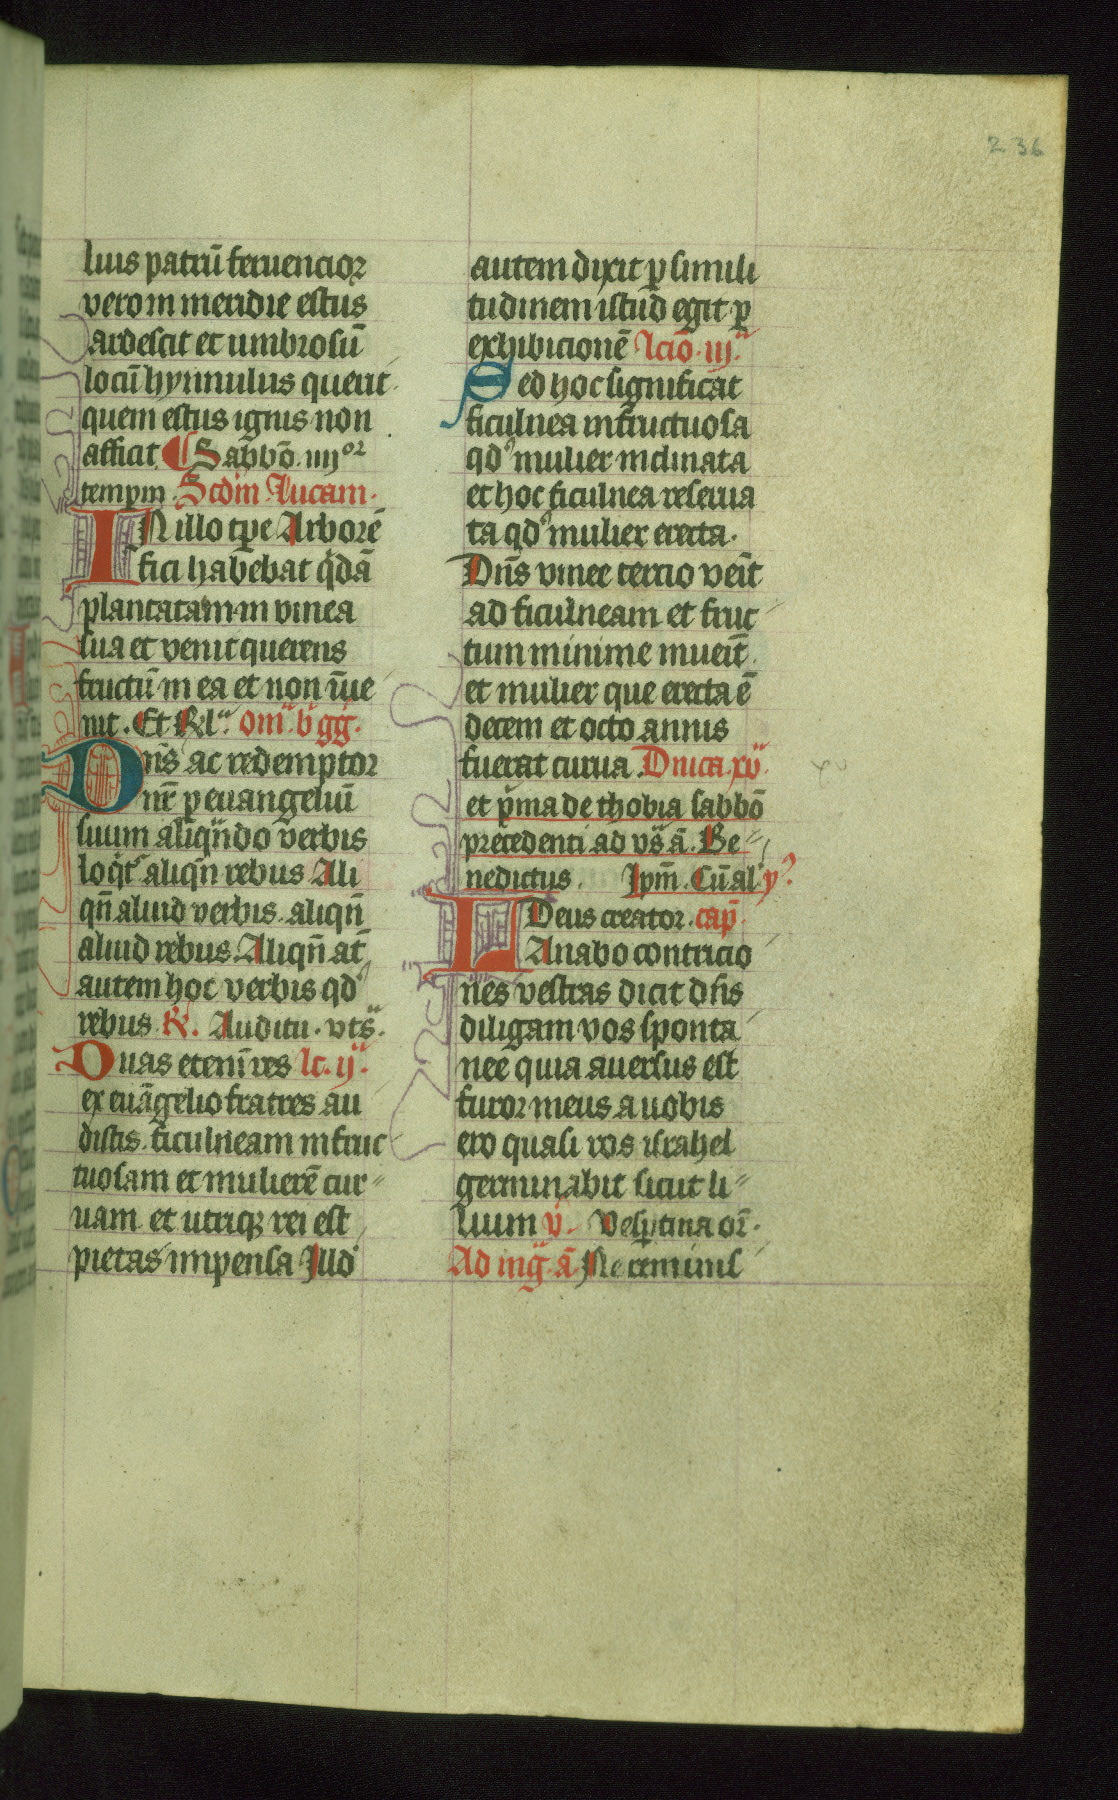 236
luus patrū feruencior
vero in meridie estus
ardescit et umbrosū
locū hynnulus querit
quem estus ignis non
afficit ¶ Sabbō. iiijor
temprm. Scdm Lucam.
In illo tpe Arborē
fici habebat qdā
plantatam in vinea
sua et venit querens
fructū in ea et non īue
nit. Et Rel. om. b. gg.
Dn̄s ac redemptor
nr̄ p euangeliū
suum aliqn̄do verbis
loqt aliqn̄ rebus Ali
qn̄ aliud verbis aliqn̄
aliud rebus Aliqn̄ at̄
autem hoc verbis qd
rebus R. Auditu. vts.
Duas etenī res lc. ij.
ex euāgelio fratres au
distis. ficulneam infruc
tuosam et mulierē cur
uam et utriq; rei est
pietas impensa Illd
autem dixit p simili
tudinem istud egit p
exhibicionē lcō. iij.
Sed hoc significat
ficulnea infructuosa
qd mulier inclinata
et hoc ficulnea reserua
ta qd mulier erecta.
Dn̄s vinee tercio venīt
ad ficulneam et fruc
tum minime īnueīt
et mulier que erecta ē
decem et octo annis
fuerat curua. Dnica. xv.
xv
et p̄ma de thobia sabbō
precedenti ad vs̄ ā. Be
nedictus. Ipm̄. Cū al y
Deus creator. cap̄.
LAnabo contricio
nes vestras dicit dn̄s
diligam vos sponta
nee quia auersus est
furor meus a uobis
ero quasi ros israhel
germinabit sicut li
lium v̄. Vesptina or̄.
Ad mḡ. ā. Ne reminis